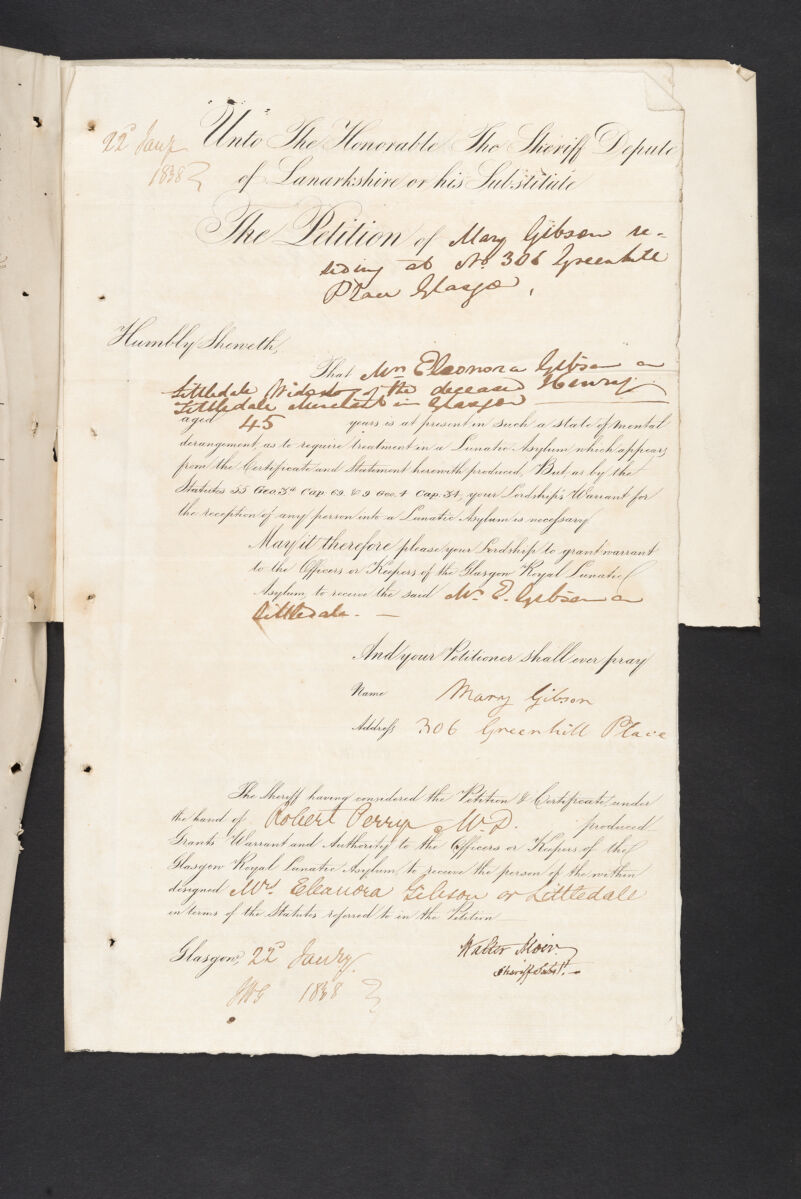 22d Jany
1838
Unto The Honorable The Sheriff Depute
of Lanarkshire or his Substitute
The Petition of Mary Gibson re-
siding at No. 306 Greenhill
Place Glasgo,
Humbly Sheweth,
That Mrs Eleonora Gibson or
Littledale Widow of the deceased Henry
Littledale Merchant in Glasgow
aged 45 years is at present in such a state of mental
derangement, as to require treatment in a Lunatic Asylum, which appears
from the Certificate and Statement herewith produced, But as by the
Statutes 55 Geo. 3d Cap. 69. & 9 Geo. 4 Cap. 34, your Lordship's Warrant for
the reception of any person into a Lunatic Asylum is necessary
May it therefore please your Lordship to grant warrant
to the Officers or Keepers of the Glasgow Royal Lunatic
Asylum, to receive the said Mrs E. Gibson or
Littledale. —
And your Petitioner shall ever pray
Name Mary Gibson
Address 306 Greenhill Place
The Sheriff having considered the Petition & Certificate, under
the hand of Robert Perry M.D. produced
Grants Warrant and Authority to the Officers or Keepers of the
Glasgow Royal Lunatic Asylum, to receive the person of the within
designed Mrs Eleanora Gibson or Littledale
in terms of the Statutes referred to in the Petition
Glasgow, 22d Janry.
1838
Walter Moir
Sheriff Subst.